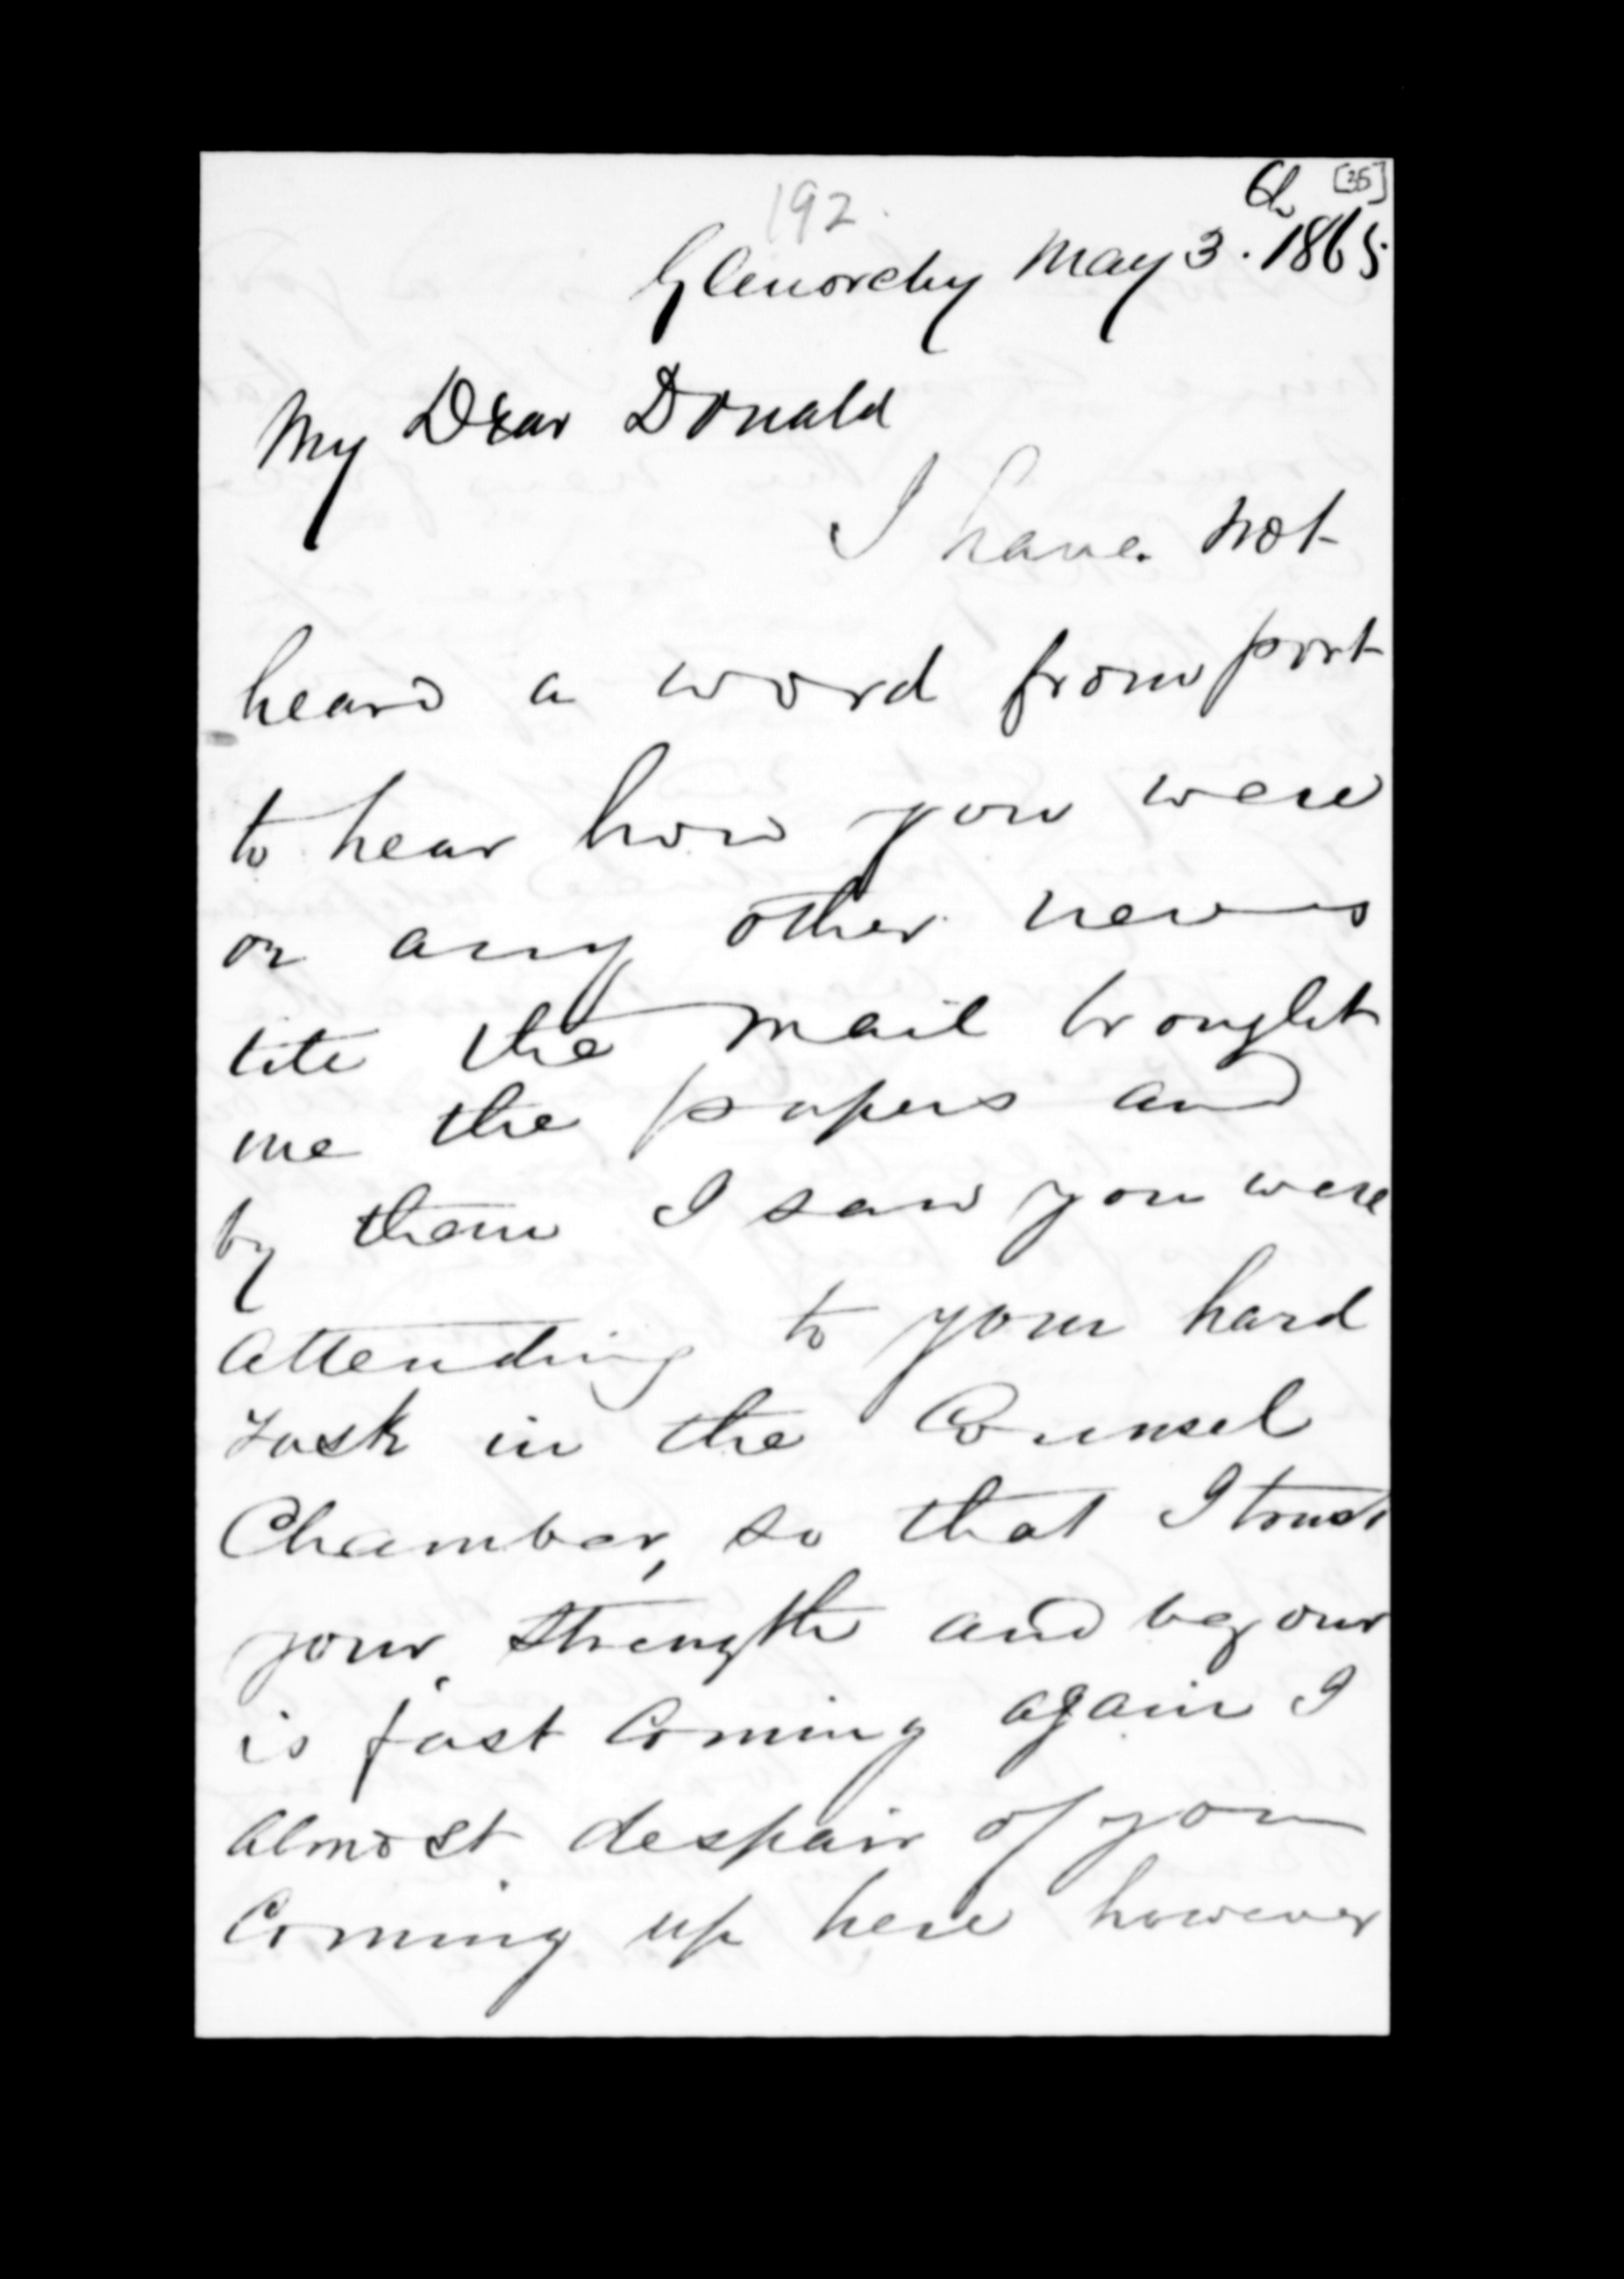 [35]
192.
Glenorchy May 3. 1865.
My Dear Donald
I have not
heard a word from port
to hear how you were
or any other news
till the mail brought
me the papers and
by them I saw you were
attending to your hard
task in the Counsel
Chamber, so that I trust
your strength and begour
is fast Coming again I
almost despair of you
Coming up here however